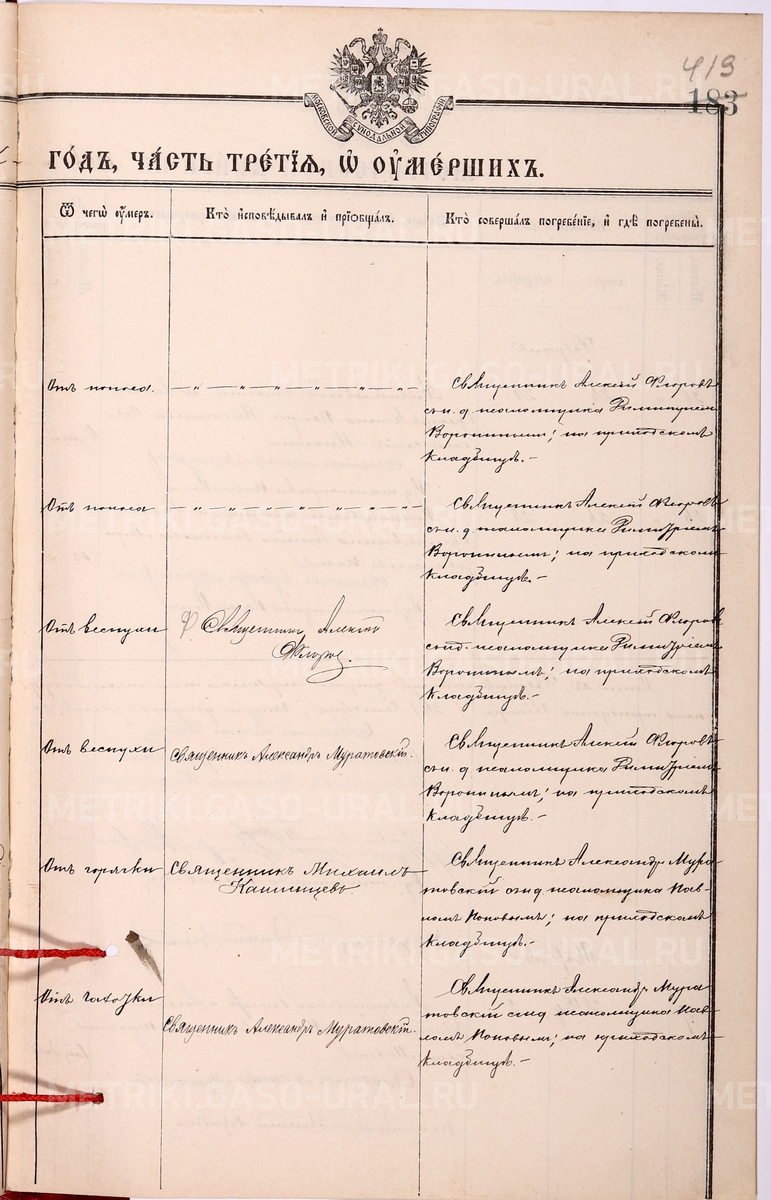 419
183
МОСКОВСКОЙ СѴНОДАЛЬНОЙ ТИПОГРАФІИ
ГО́ДЪ, ЧА́СТЬ ТРЕ́ТІѦ, Ѡ҆ ОУ҆МЕ́РШИХЪ.
Ѿ чегѡ̀ оу҆́меръ.
Кто̀ и҆сповѣ́дывалъ и҆ прїѡбща́лъ.
Кто̀ соверша́лъ погребе́нїе, и҆ гдѣ̀ погребены̀.
Отъ поноса.
Священникъ Алексѣй Флоровъ
съ и. д. псаломщика Димитріемъ
Воронинымъ; на приходскомъ
Кладбищѣ.-
Отъ поноса
Священникъ Алексѣй Флоровъ
съ и. д. псаломщика Димитріемъ
Воронинымъ; на приходскомъ
Кладбищѣ.-
Отъ веспухи
Священникъ Алексѣй
Флоровъ.
Священникъ Алексѣй Флоровъ
псаломщика Димитріемъ
Воронинымъ; на приходскомъ
Кладбищѣ.-
Отъ веспухи
Священникъ Александръ Муратовскій.
Священникъ Алексѣй Флоровъ
съ и. д. псаломщика Димитріемъ
Воронинымъ; на приходскомъ
Кладбищѣ.-
Отъ горячки
Священникъ Михаилъ
Священникъ Александръ Мура
товскій псаломщика Пав-
ломъ Поповымъ; на приходскомъ
Кладбищѣ.-
Отъ чахотки
Священникъ Александръ Муратовскій.
Священникъ Александръ Мура
товскій псаломщика Пав-
ломъ Поповымъ; на приходскомъ
Кладбищѣ.-
METRIKI.GASO-URAL.RU